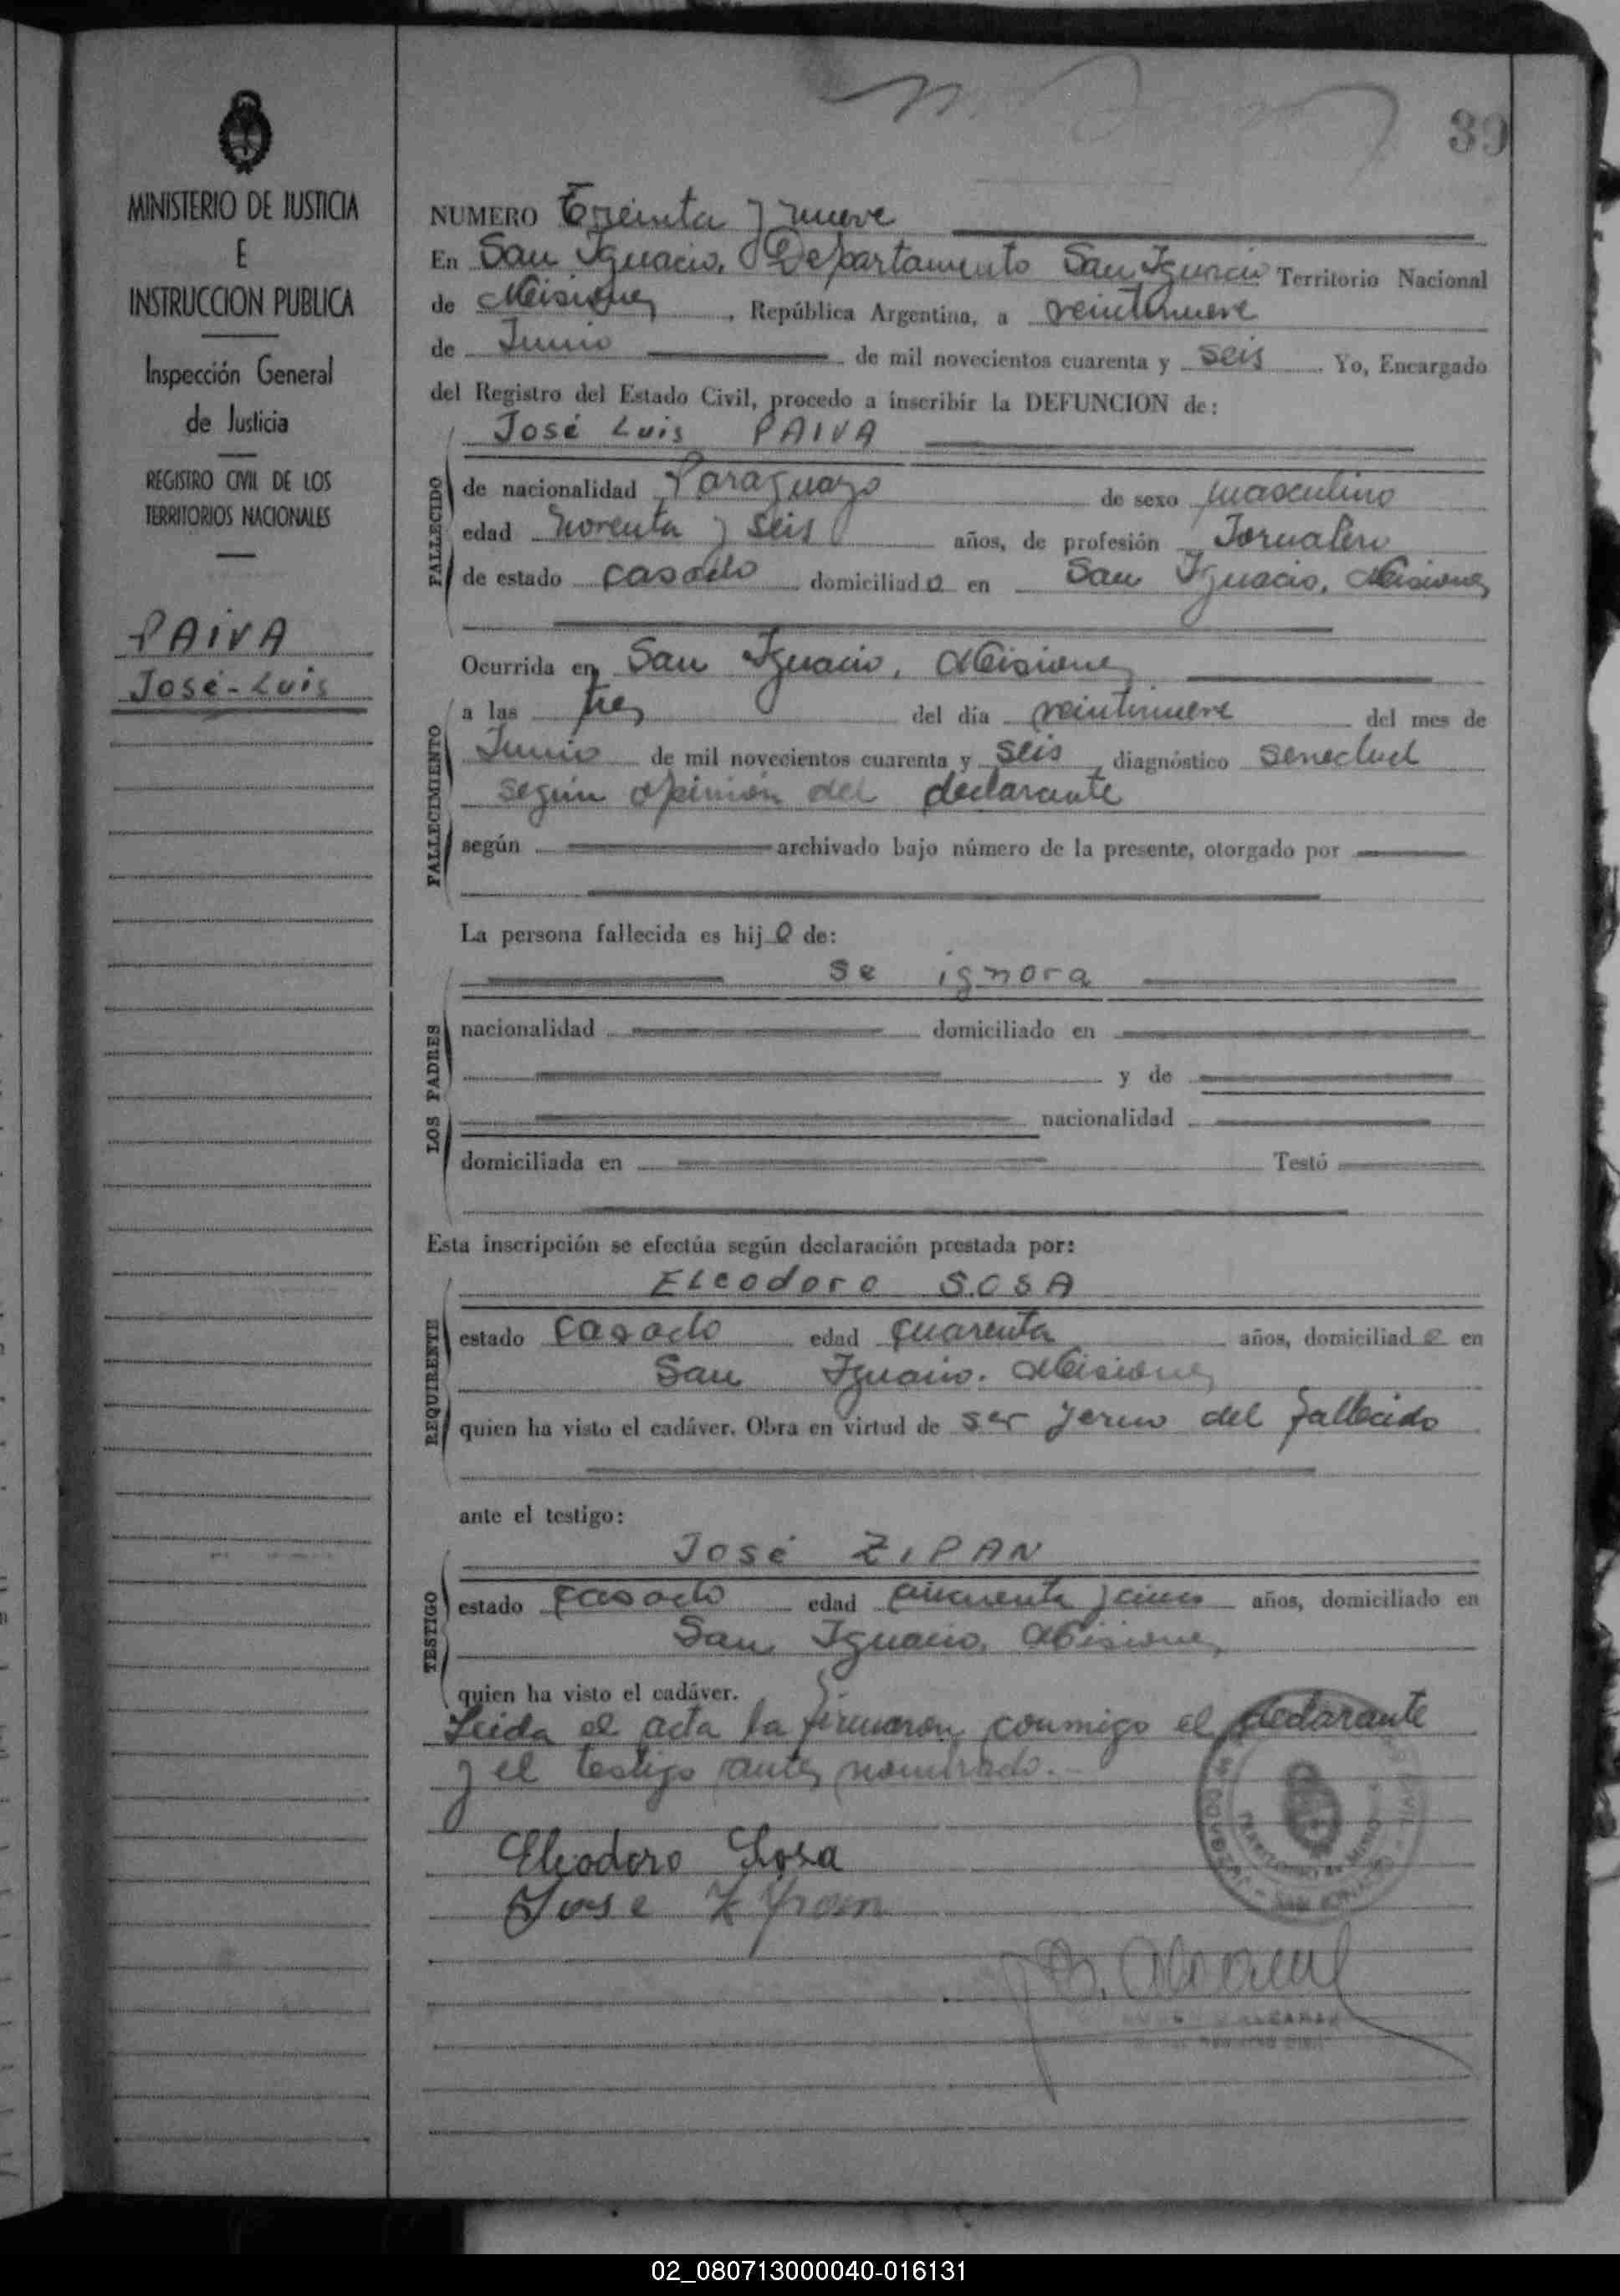 39
MINISTERIO DE JUSTICIA
E
INSTRUCCION PUBLICA
Inspección General
de Justicia
REGISTRO CIVIL DE LOS
TERRITORIOS NACIONALES
PAIVA
José-Luis
NUMERO Treinta y nueve
En San Ignacio, Departamento San Ignacio Territorio Nacional
de Misiones, República Argentina, a veintinueve
de Junio de mil novecientos cuarenta y seis Yo, Encargado
del Registro del Estado Civil, procedo a inscribir la DEFUNCION de:
José Luis PAIVA
FALLECIDO
de nacionalidad Paraguayo de sexo masculino
edad noventa y seis años, de profesión Jornalero
de estado casado domiciliado en San Ignacio, Misiones
Ocurrida en San Ignacio, Misiones
FALLECIMIENTO
a las tres del día veintinueve del mes de
Junio de mil novecientos cuarenta y seis, diagnóstico senectud
según opinión del declarante
según archivado bajo número de la presente, otorgado por
La persona fallecida es hijo de:
LOS PADRES
se ignora
nacionalidad domiciliado en
y de
nacionalidad
domiciliada en Testó
Esta inscripción se efectúa según declaración prestada por:
REQUIRENTE
ELeodoro SOSA
estado casado edad cuarenta años, domiciliado en
San Ignacio. Misiones
quien ha visto el cadáver. Obra en virtud de ser yerno del fallecido
ante el testigo:
TESTIGO
José ZIPAN
estado casado edad cincuenta y cinco años, domiciliado en
San Ignacio, Misiones
quien ha visto el cadáver.
Leida el acta la firmaron conmigo el declarante
y el testigo antes nombrado.-
Eleodoro Sosa
Jose
02_080713000040-016131